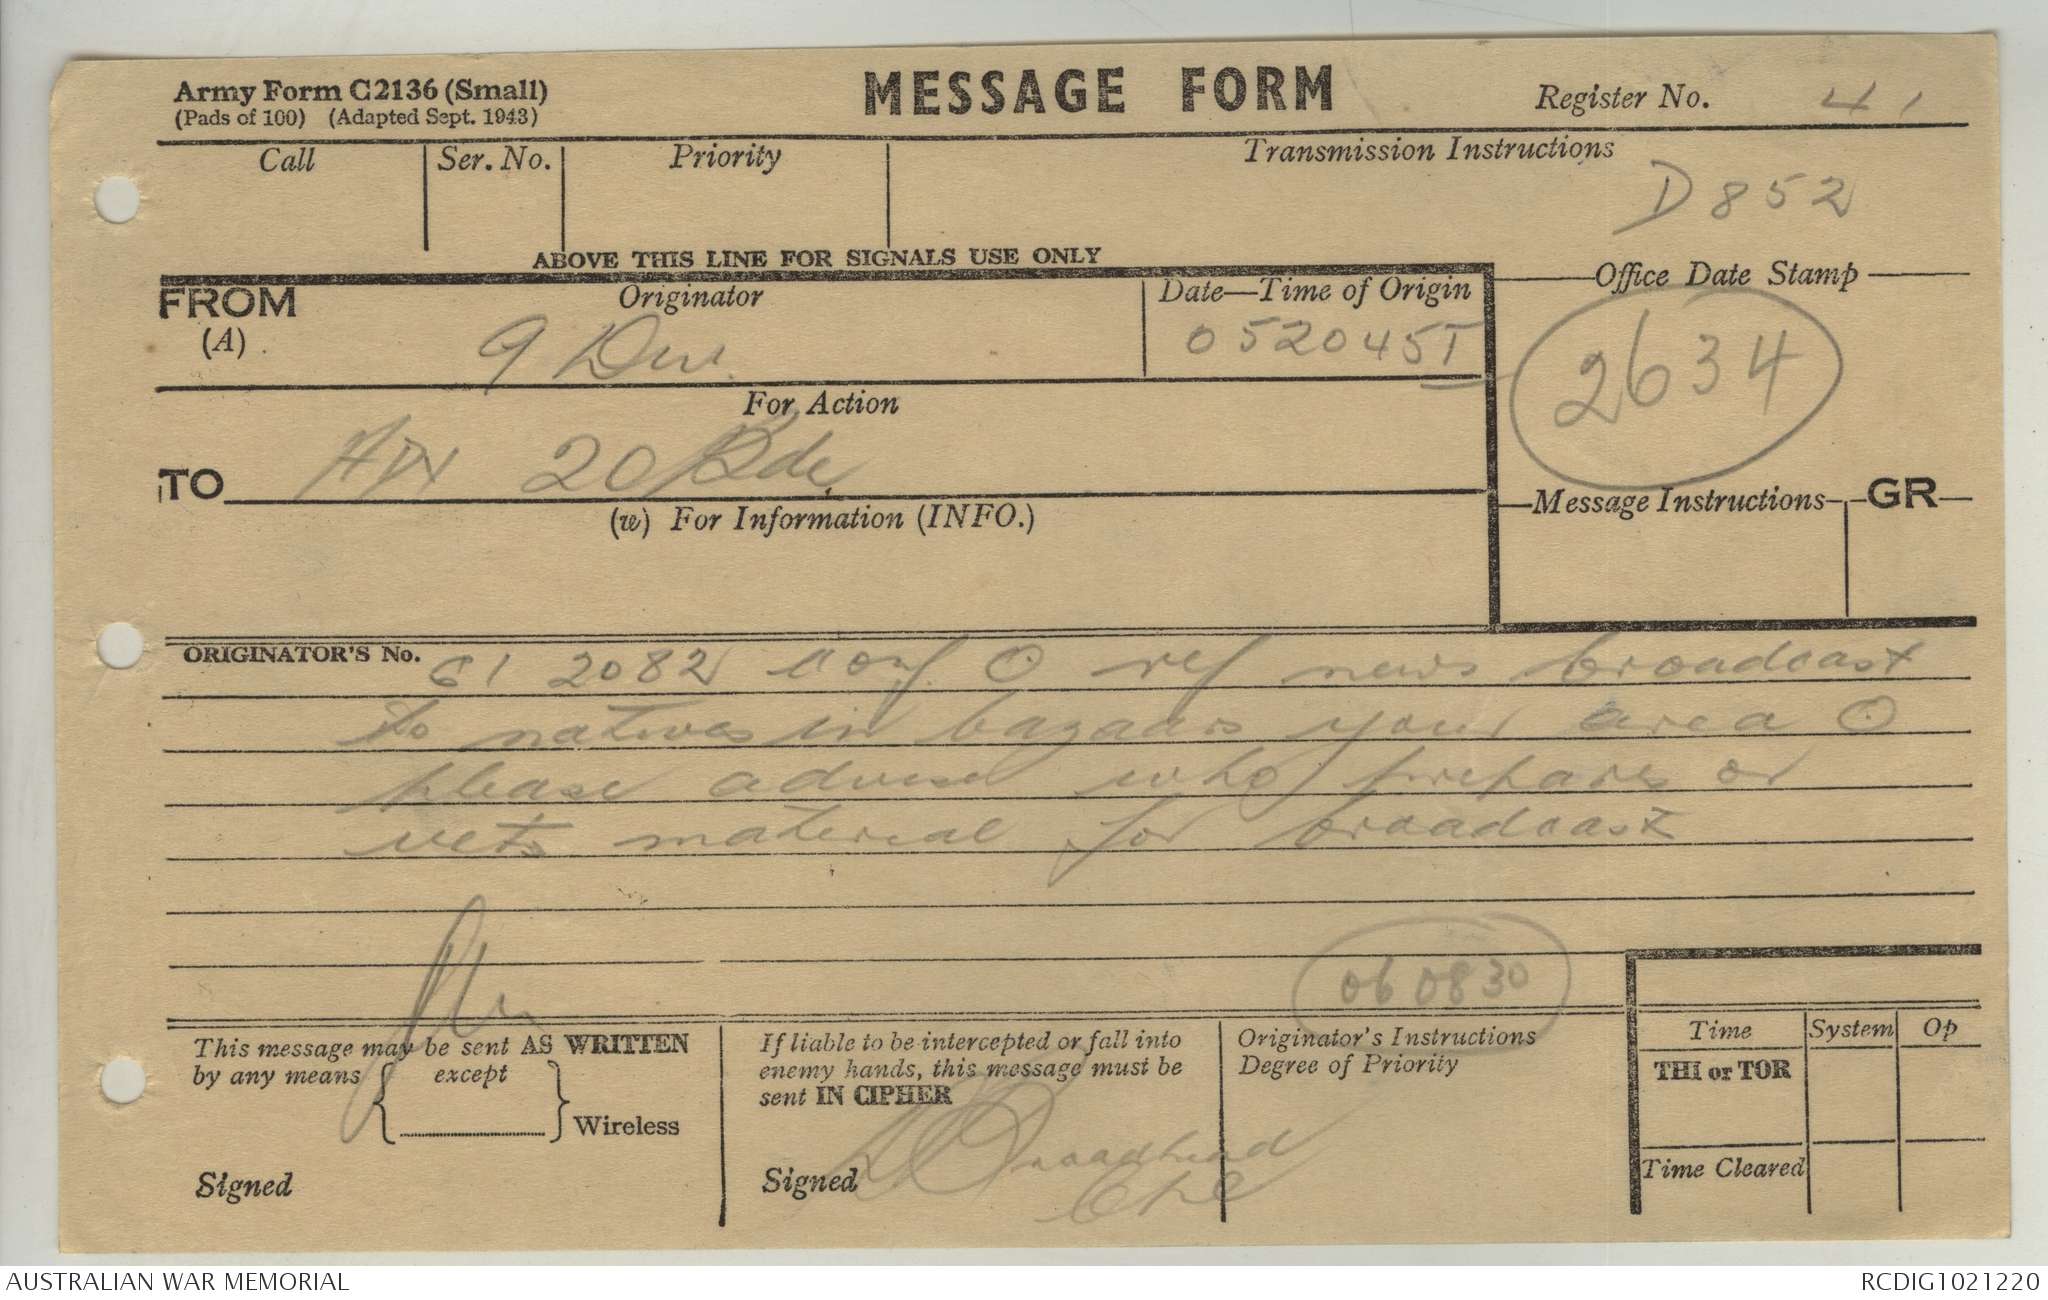 Army Form C2136 (Small)
(Pads of 100) (Adapted Sept. 1943)
MESSAGE FORM
Register No. 41
Call
Ser. No.
Priority
Transmission Instructions
D852
ABOVE THIS LINE FOR SIGNALS USE ONLY
FROM
(A)
Originator
9 Div.
Date—Time of Origin
052045I
Office Date Stamp
2634
For Action
TO
20 Bde
(w) For Information (INFO.)
Message Instructions
GR
ORIGINATOR'S No.
G1 2082 conf. O ref news broadcast
to natives in bazaars your area O
please advise who prepares or
vets material for broadcast
060830
This message may be sent AS WRITTEN
by any means except
Wireless
Signed
If liable to be intercepted or fall into
enemy hands, this message must be
sent IN CIPHER
Signed
Broadhead
Cpl
Originator's Instructions
Degree of Priority
Time
System
Op
THI or TOR
Time Cleared
AUSTRALIAN WAR MEMORIAL
RCDIG1021220